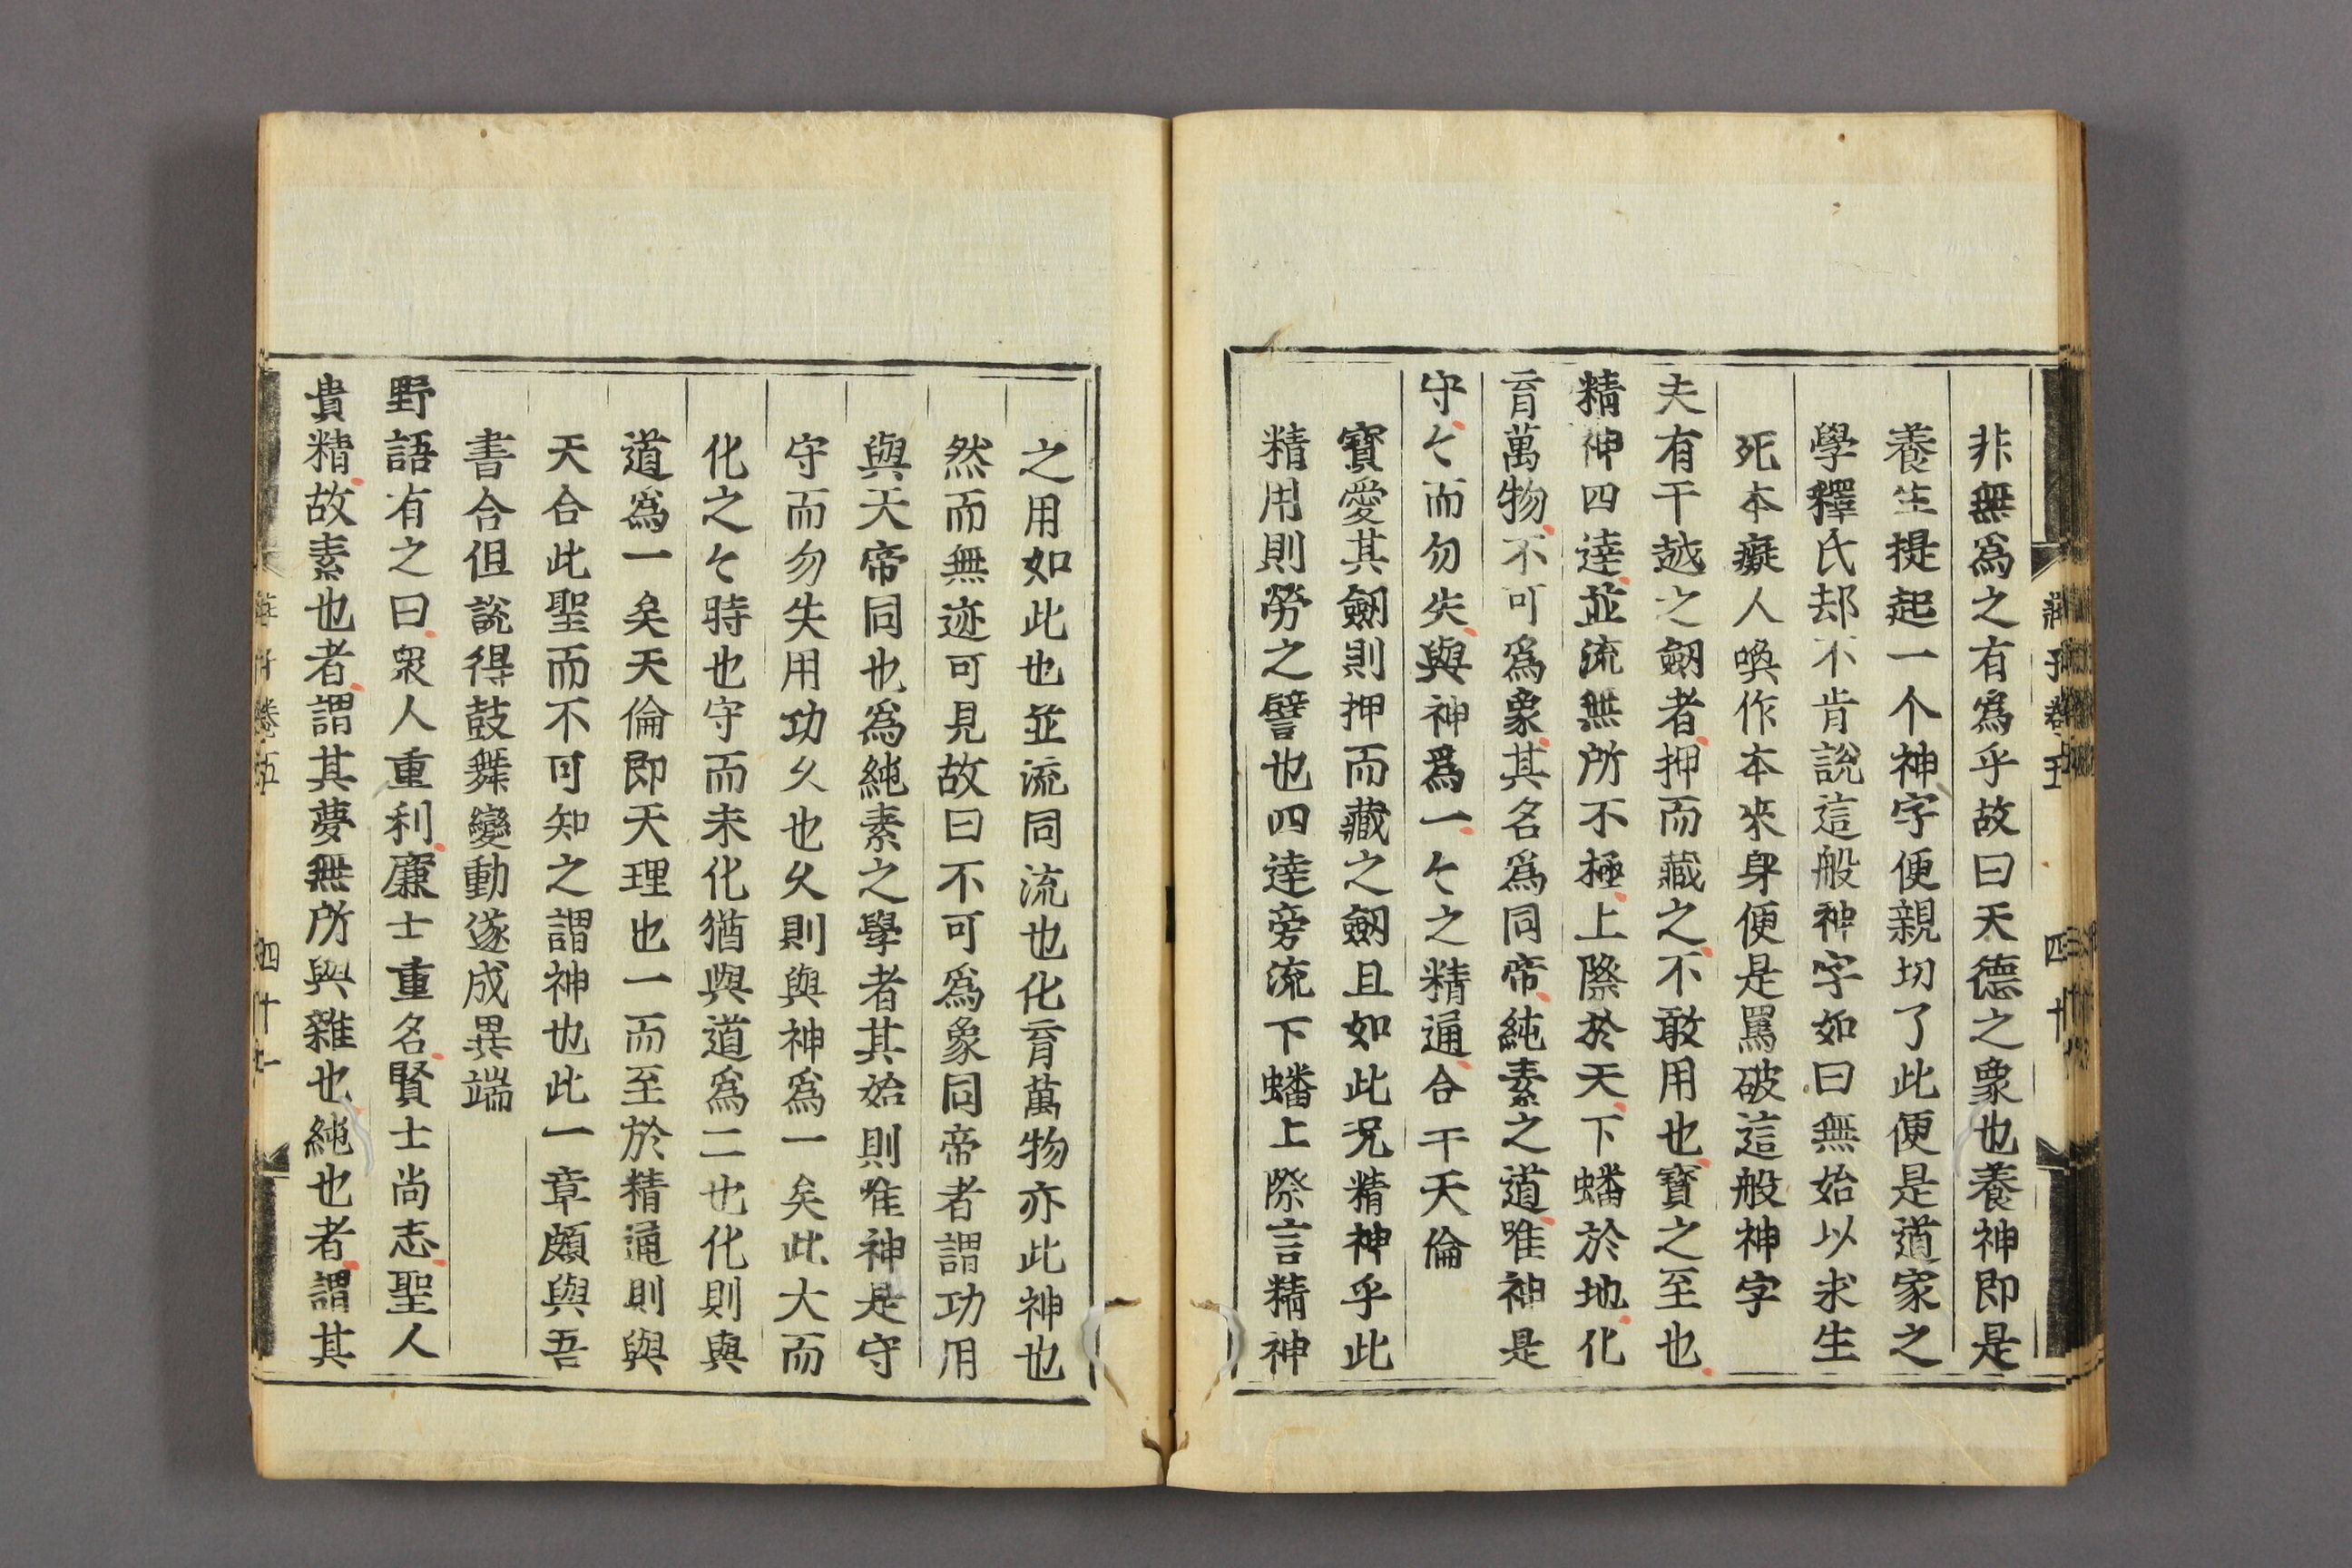 莊子卷五　四十
非無爲之有爲乎故曰天德之象也養神即是
養生提起一个神字便親切了此便是道家之
學釋氏却不肯說這般神字如曰無始以求生
死本癡人喚作本來身便是罵破這般神字
夫有干越之劒者押而藏之不敢用也寶之至也
精神四達並流無所不極上際於天下蟠於地化
育萬物不可爲象其名爲同帝純素之道唯神是
守〻而勿失與神爲一〻之精通合干天倫
寶愛其劒則押而藏之劒且如此况精神乎此
精用則勞之譬也四達旁流下蟠上際言精神
之用如此也並流同流也化育萬物亦此神也
然而無迹可見故曰不可爲象同帝者謂功用
與天帝同也爲純素之學者其始則唯神是守
守而勿失用功久也久則與神爲一矣此大而
化之〻時也守而未化猶與道爲二也化則與
道爲一矣天倫即天理也一而至於精通則與
天合此聖而不可知之謂神也此一章頗與吾
書合但說得鼓舞變動遂成異端
野語有之曰衆人重利廉士重名賢士尚志聖人
貴精故素也者謂其夢無所與雜也純也者謂其
卷五　四十一